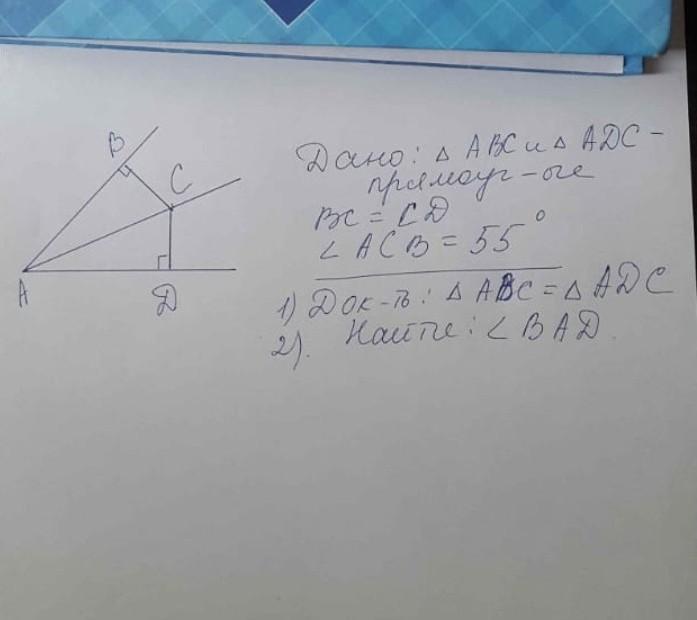 B
C
A
D
Дано: △ ABC и △ ADC -
прямоуг-ые
BC = CD
∠ ACB = 55°
1) Док-ть: △ ABC = △ ADC
2). Найти: ∠ BAD.